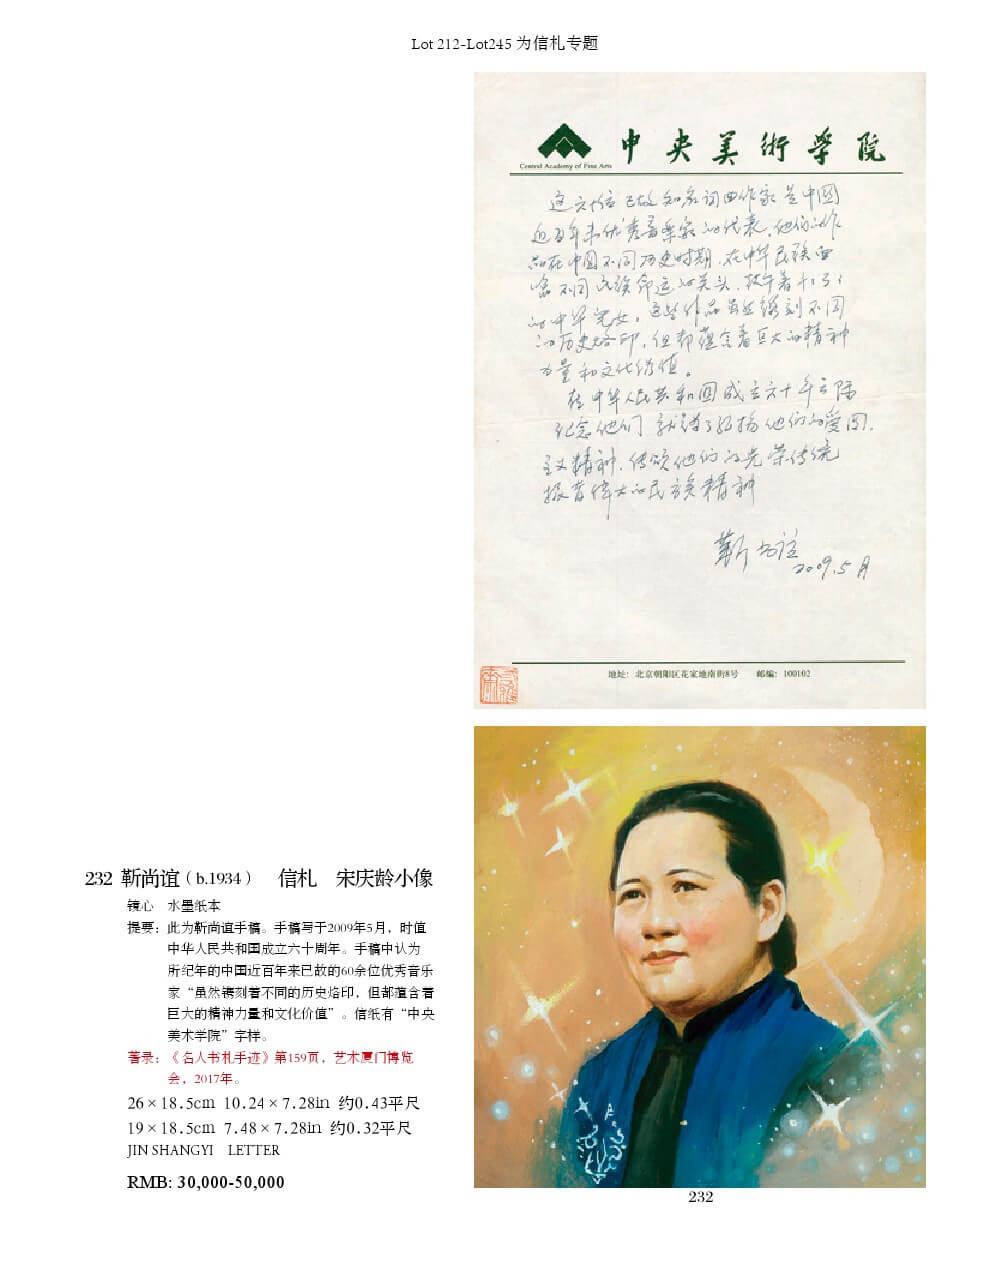 Lot 212-Lot245 为信札专题
Central Academy of Fine Arts
中央美術學院
这六十位已故知名词曲作家是中国
近百年来优秀音乐家的代表，他们的作
品在中国不同历史时期，在中华民族面
临不同民族命运的关头，鼓午着千千万万
的中华児女。这些作品虽然镌刻不同
的历史烙印，但都蕴含着巨大的精神
力量和文化价值。
在中华人民共和国成立六十年之际
纪念他们 就
他们的爱国
主义精神，传颂他们的光荣传统
伟大的民族精神
靳尚谊
2009.5月
地址：北京朝阳区花家地南街8号 邮编：100102
232 靳尚谊（b.1934） 信札 宋庆龄小像
镜心 水墨纸本
提要：此为靳尚谊手稿。手稿写于2009年5月，时值
中华人民共和国成立六十周年。手稿中认为
所纪年的中国近百年来已故的60余位优秀音乐
家“虽然镌刻着不同的历史烙印，但都蕴含着
巨大的精神力量和文化价值”。信纸有“中央
美术学院”字样。
著录：《名人书札手迹》第159页，艺术厦门博览
会，2017年。
26×18.5cm 10.24×7.28in 约0.43平尺
19×18.5cm 7.48×7.28in 约0.32平尺
JIN SHANGYI LETTER
RMB: 30,000-50,000
232